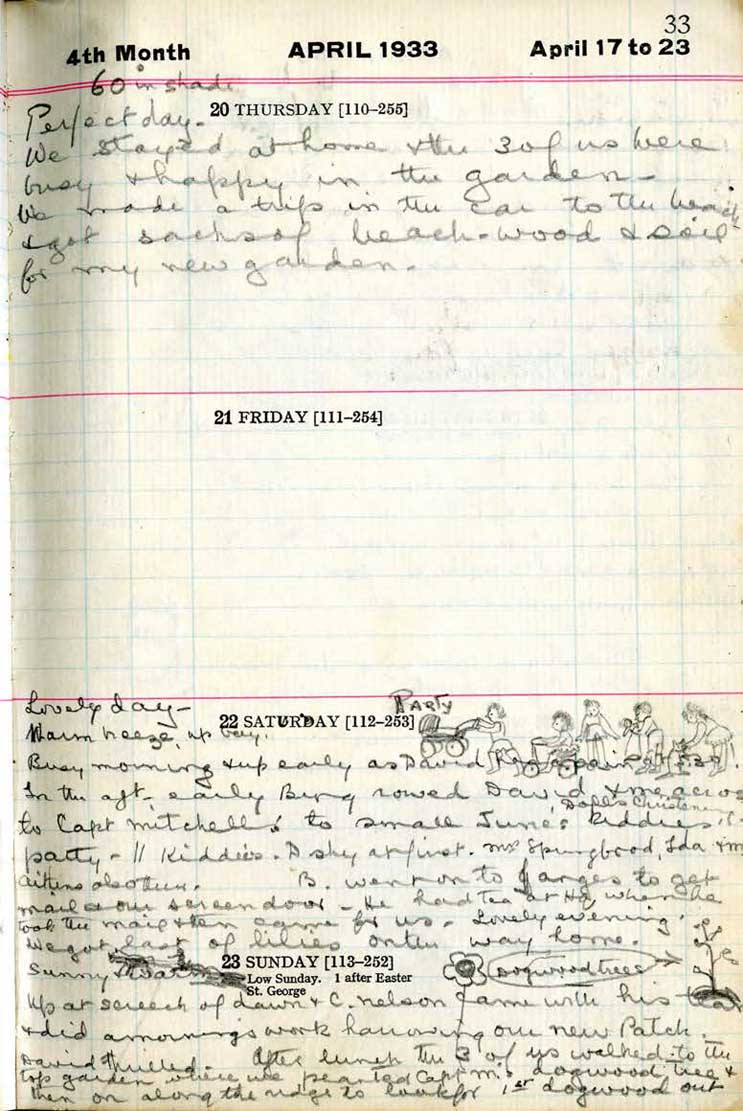 33
4th Month APRIL 1933 April 17 to 23
60 in shade
20 THURSDAY [110–255]
Perfect day.
We stayed at home & the 3 of us were
busy & happy in the garden –
We made a trip in the car to the beach
& got sacks of beach-wood & soil
for my new garden.
21 FRIDAY [111–254]
Lovely day –
PARTY
22 SATURDAY [112–253]
Warm breeze, up bay.
Busy morning & up early as David
In the aft. early Bing rowed David & me across
Doll's Christening
to Capt Mitchell's to small June's Kiddies
party – 11 Kiddies. D shy at first. Mrs Springbrood, Ida &
aitkens also there. B. went on to to get
mail & our screen door – He had tea at when he
took the mail & then came for us. Lovely evening.
We got last of lilies on the way home.
23 SUNDAY [113–252]
Sunny &
dogwood trees
Low Sunday. 1 after Easter
St. George
Up at screech of dawn & C. Nelson came with his
& did a mornings work harrowing our new Patch.
David thrilled. After lunch the 3 of us walked to the
top garden where we planted Capt M's dogwood tree &
then on along the ridge to look for 1st dogwood out